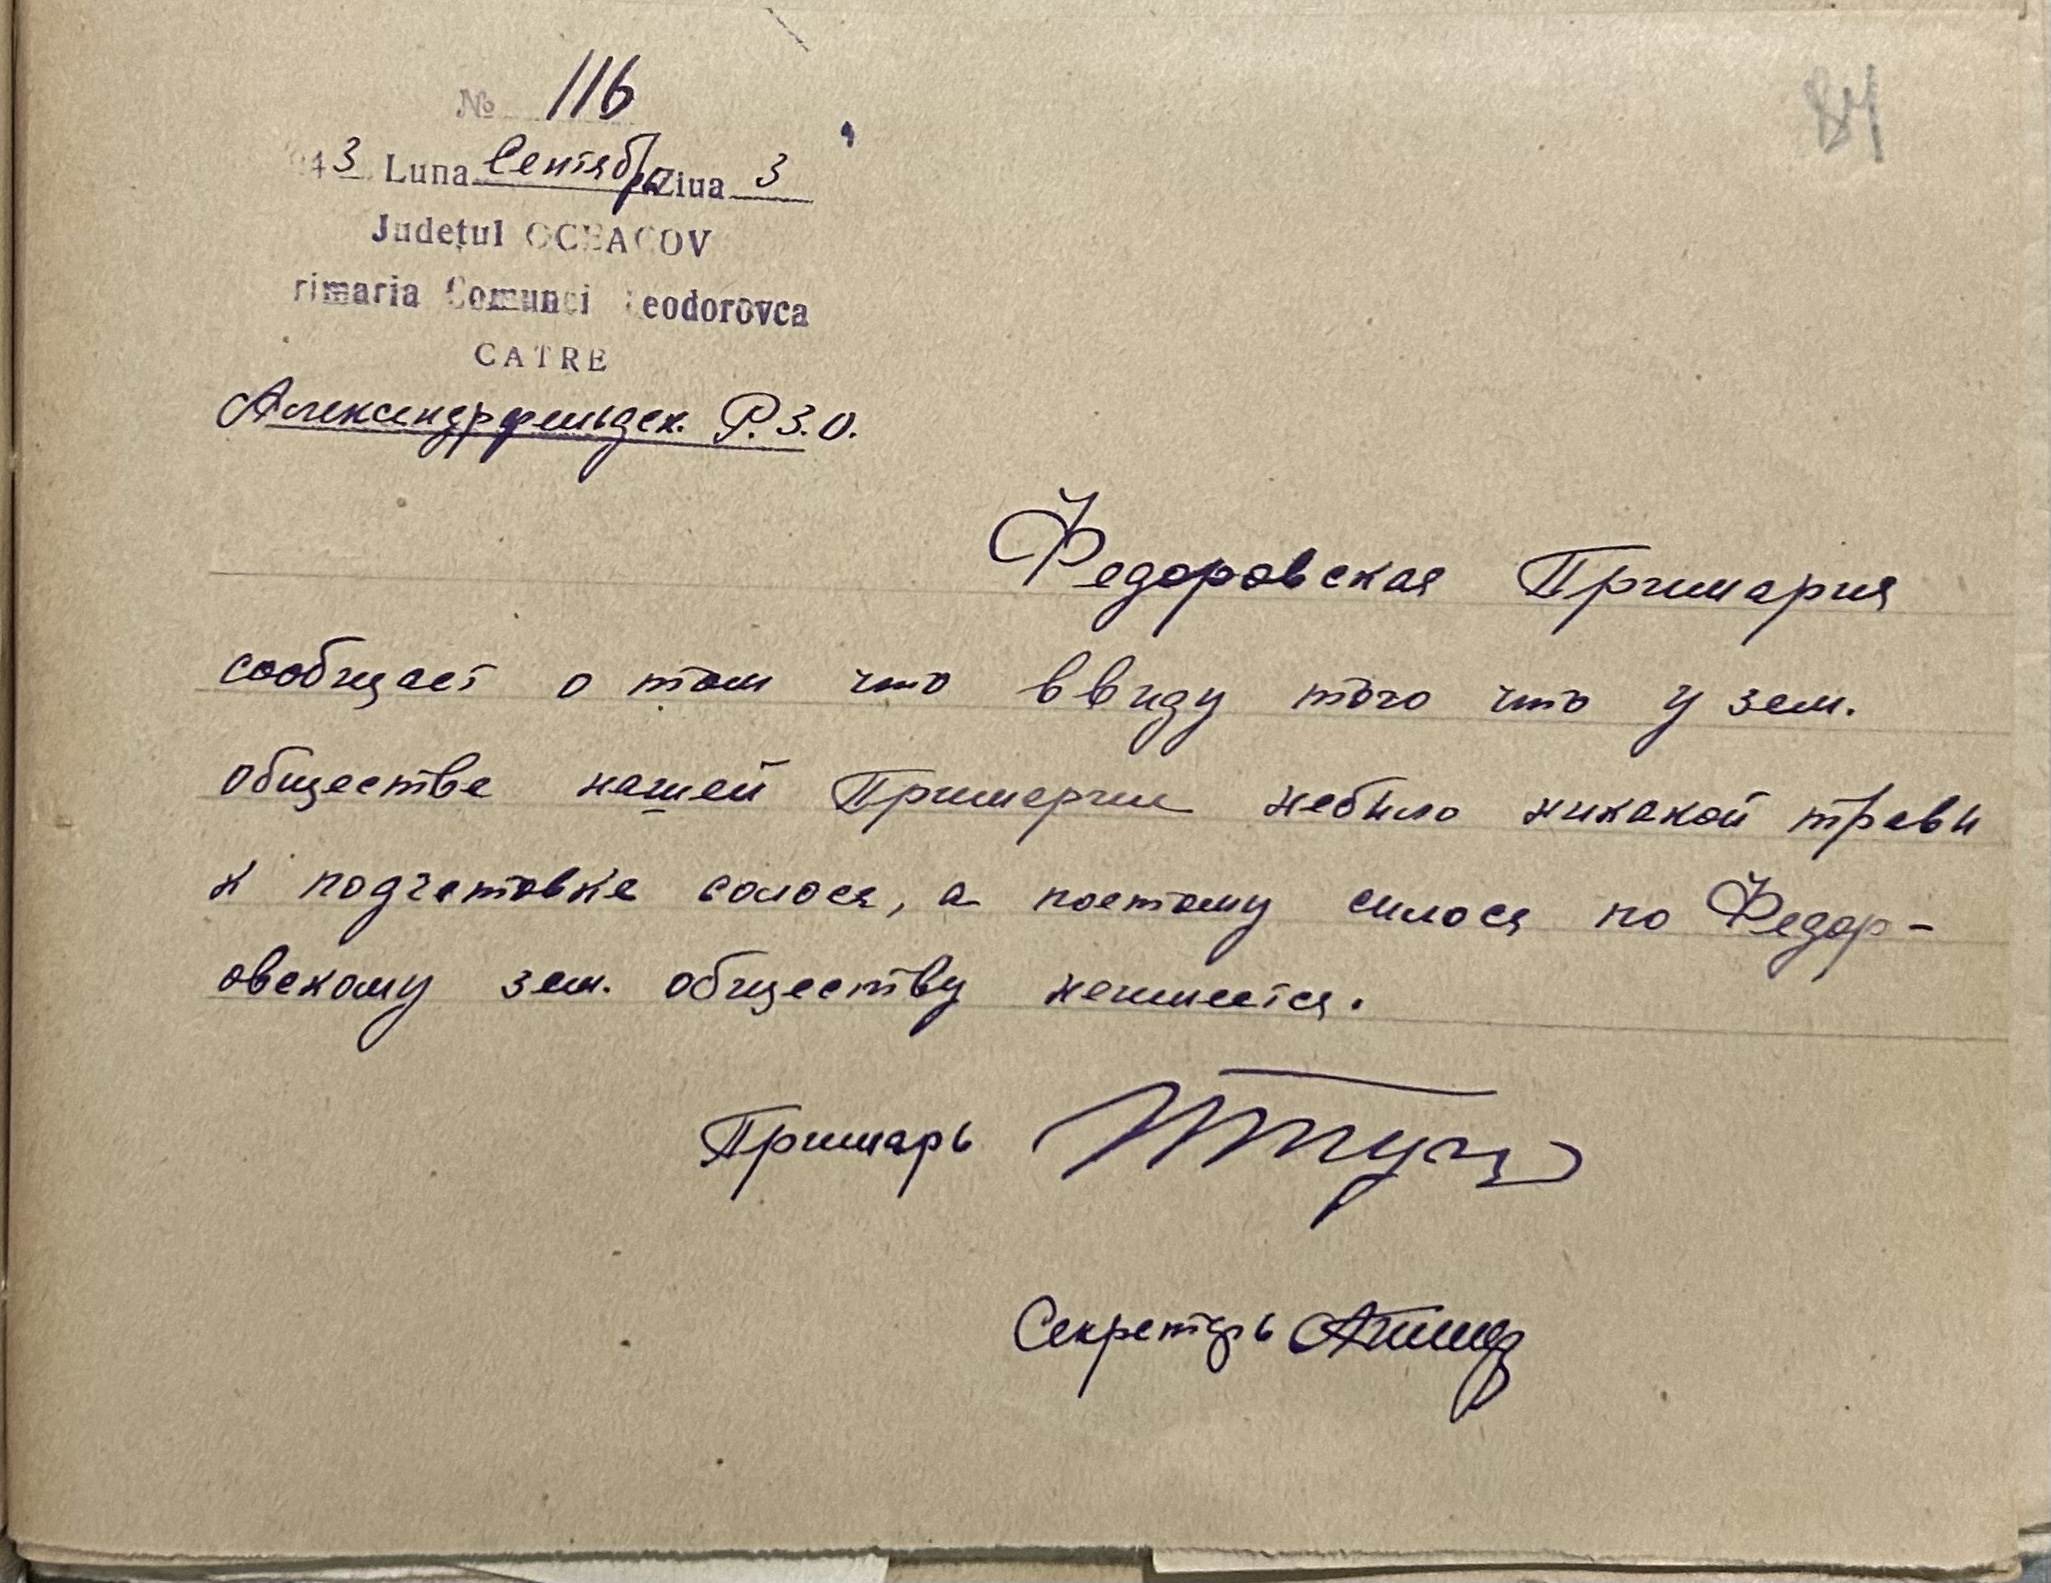 84
№ 116
943 Luna Сентябрь Ziua 3
Județul OCEACOV
rimaria Comunei Teodorovca
CATRE
Александрфельдск. Р.З.О.
Федоровская Примария
сообщает о том что ввиду того что у зем.
обществе нашей Примарии небыло никакой травы
к подготовке солоса, а поетому силоса по Федор-
овскому зем. обществу неимеется.
Примарь
Секретарь